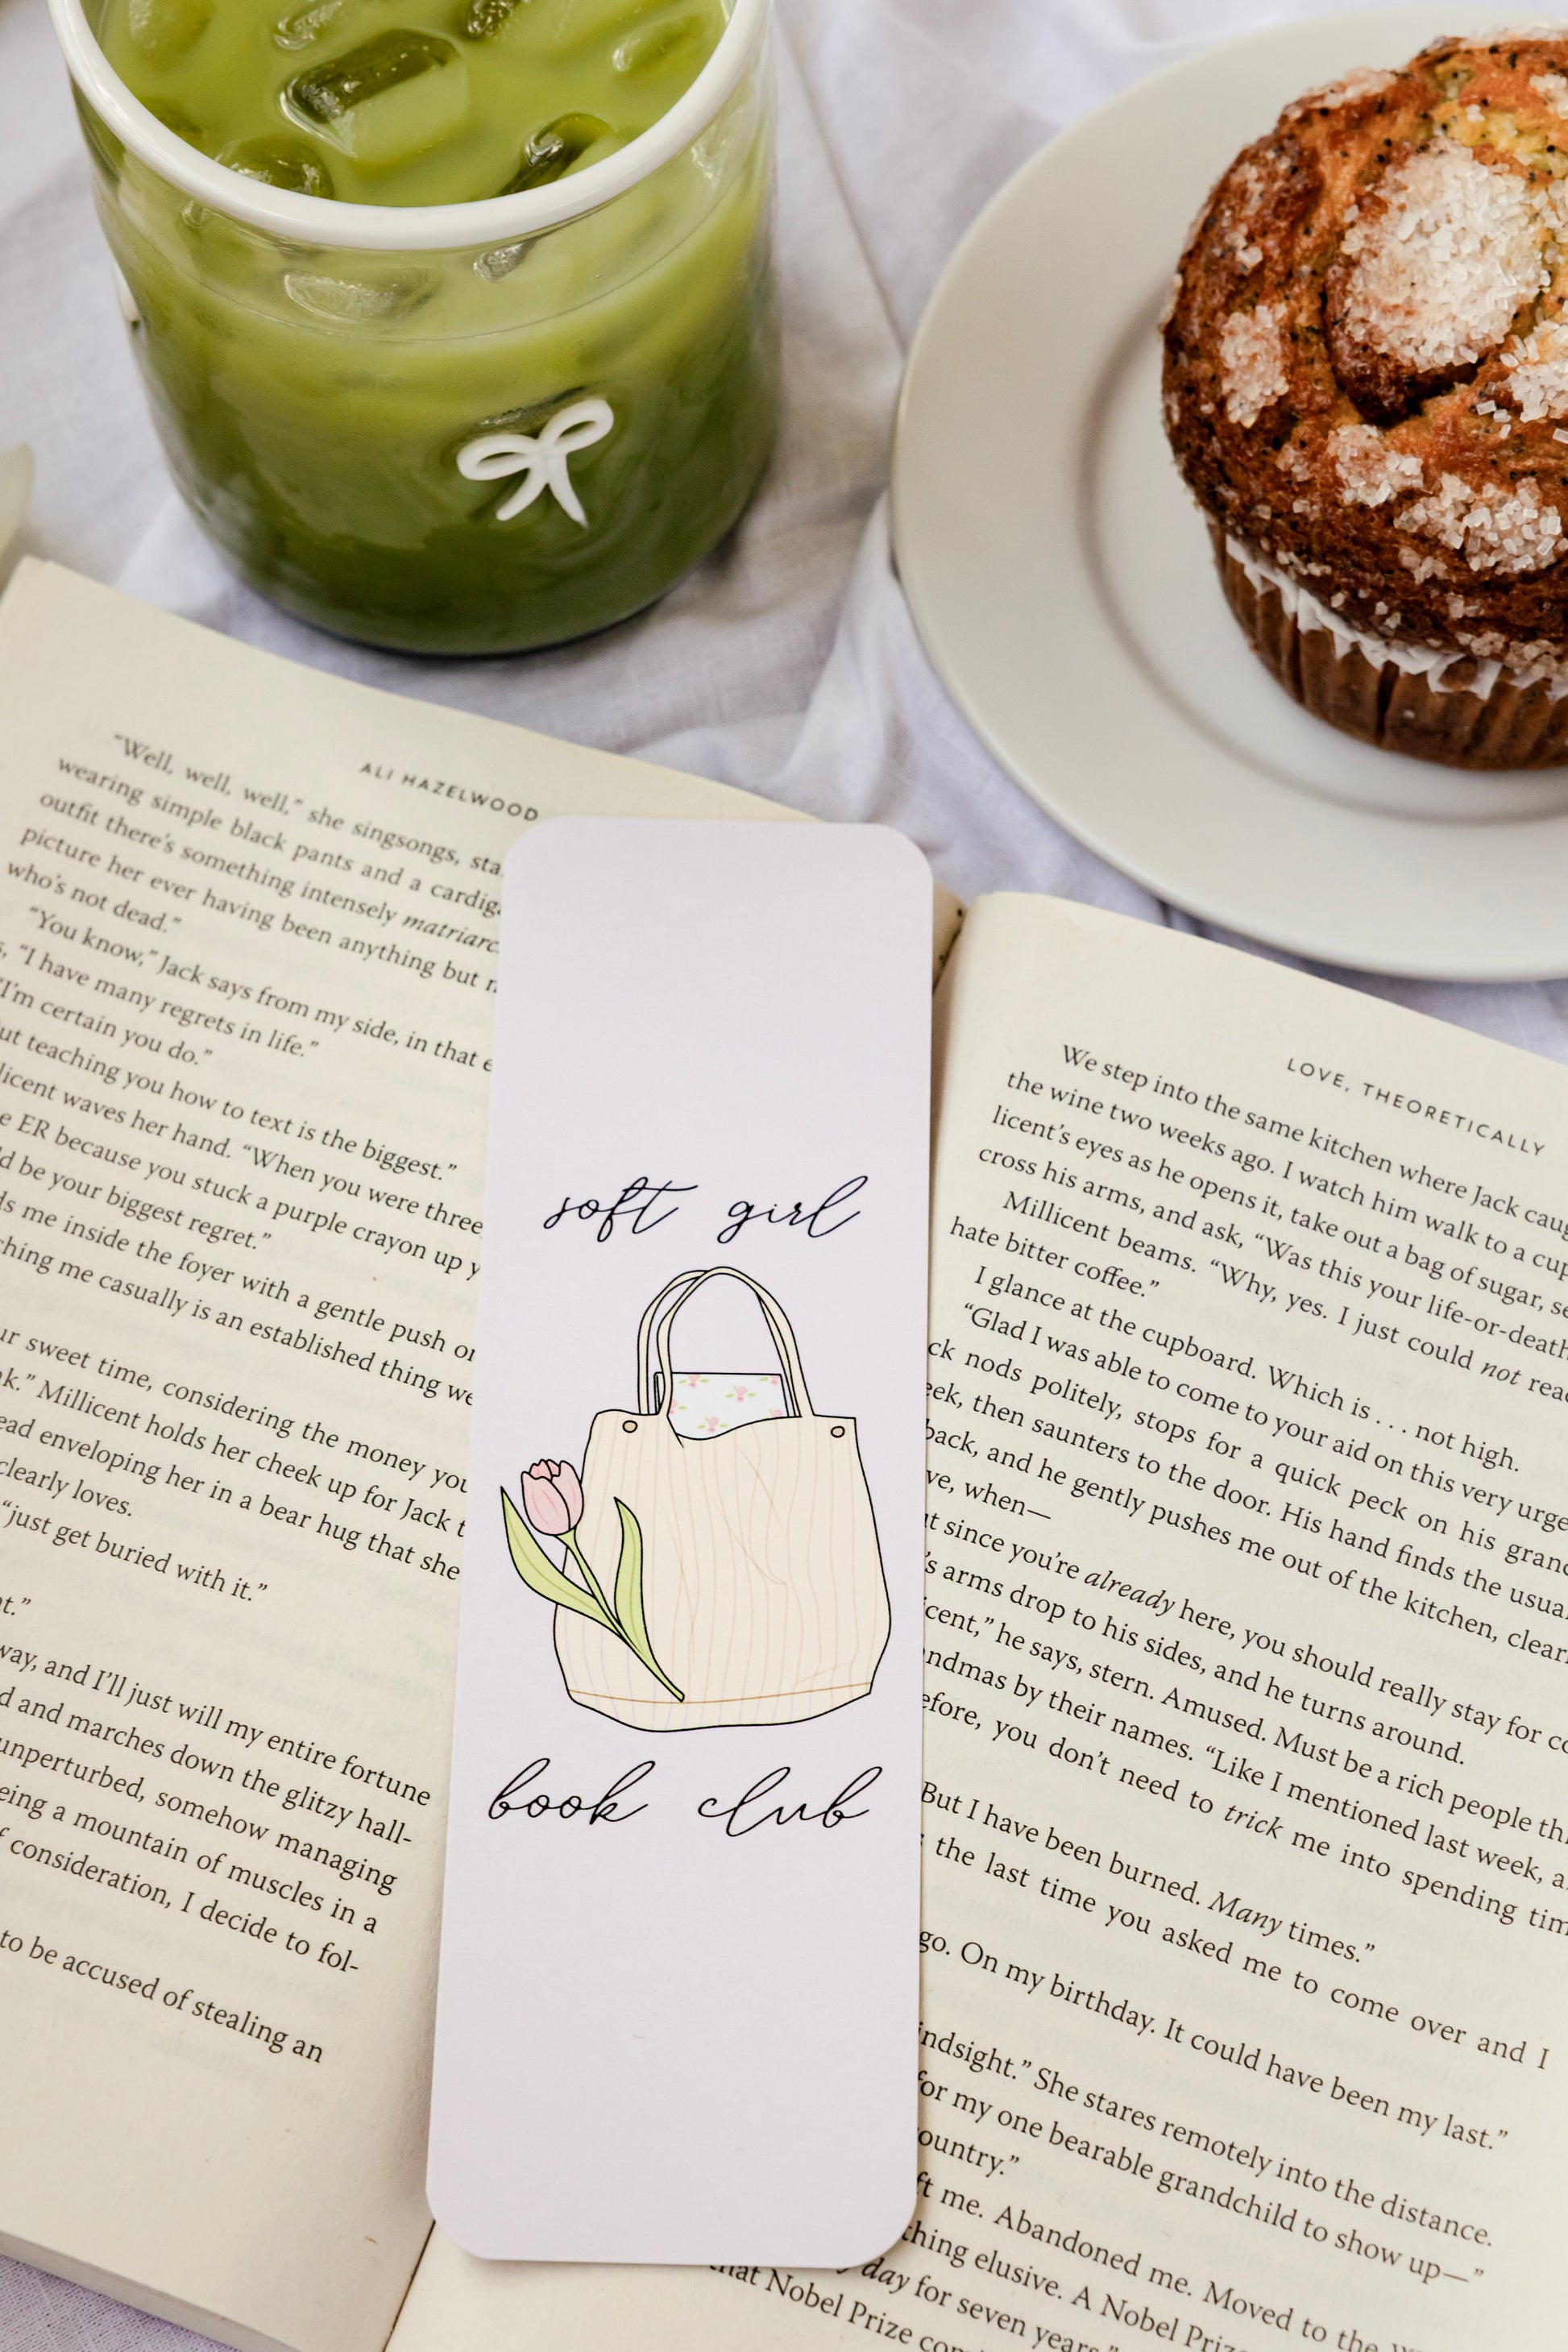 ALI HAZELWOOD
“Well, well, well,” she singsongs, sta
wearing simple black pants and a cardig
outfit there’s something intensely matriarc
picture her ever having been anything but
who’s not dead.”
“You know,” Jack says from my side, in that
“I have many regrets in life.”
“I’m certain you do.”
ut teaching you how to text is the biggest.”
licent waves her hand. “When you were three
e ER because you stuck a purple crayon up y
d be your biggest regret.”
ds me inside the foyer with a gentle push on
ching me casually is an established thing we
ur sweet time, considering the money you
k.” Millicent holds her cheek up for Jack t
ead enveloping her in a bear hug that she
clearly loves.
“just get buried with it.”
t.”
way, and I’ll just will my entire fortune
d and marches down the glitzy hall-
unperturbed, somehow managing
eing a mountain of muscles in a
f consideration, I decide to fol-
to be accused of stealing an
soft girl
book club
LOVE, THEORETICALLY
We step into the same kitchen where Jack caug
the wine two weeks ago. I watch him walk to a cup
licent’s eyes as he opens it, take out a bag of sugar, se
cross his arms, and ask, “Was this your life-or-death
Millicent beams. “Why, yes. I just could not reac
hate bitter coffee.”
I glance at the cupboard. Which is . . . not high.
“Glad I was able to come to your aid on this very urge
ck nods politely, stops for a quick peck on his grand
eek, then saunters to the door. His hand finds the usua
back, and he gently pushes me out of the kitchen, clear
ve, when—
ut since you’re already here, you should really stay for co
’s arms drop to his sides, and he turns around.
icent,” he says, stern. Amused. Must be a rich people th
andmas by their names. “Like I mentioned last week, a
efore, you don’t need to trick me into spending tim
But I have been burned. Many times.”
the last time you asked me to come over and I
go. On my birthday. It could have been my last.”
indsight.” She stares remotely into the distance.
for my one bearable grandchild to show up—”
ountry.”
ft me. Abandoned me. Moved to the
thing elusive. A Nobel Priz
day for seven years.”
that Nobel Prize com